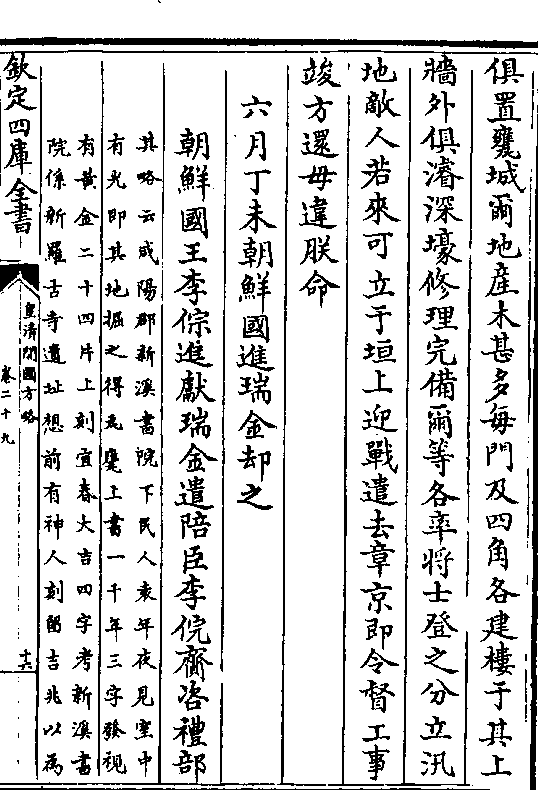 俱置甕城爾地産木甚多每門及四角各建樓于其上
牆外俱濬深壕修理完備爾等各率將士登之分立汛
地敵人若來可立于垣上迎戰遣去章京即令督工事
竣方還毋違朕命
六月丁未朝鮮國進瑞金却之
朝鮮國王李倧進獻瑞金遣陪臣李俒齎咨禮部
其略云咸陽郡新溪書院下民人袁年夜見室中
有光即其地掘之得瓦甕上書一千年三字發視
有黄金二十四片上刻宜春大吉四字考新溪書
院係新羅古寺遺址想前有神人刻留吉兆以為
欽定四庫全書
皇清開國方略
卷二十九
十六